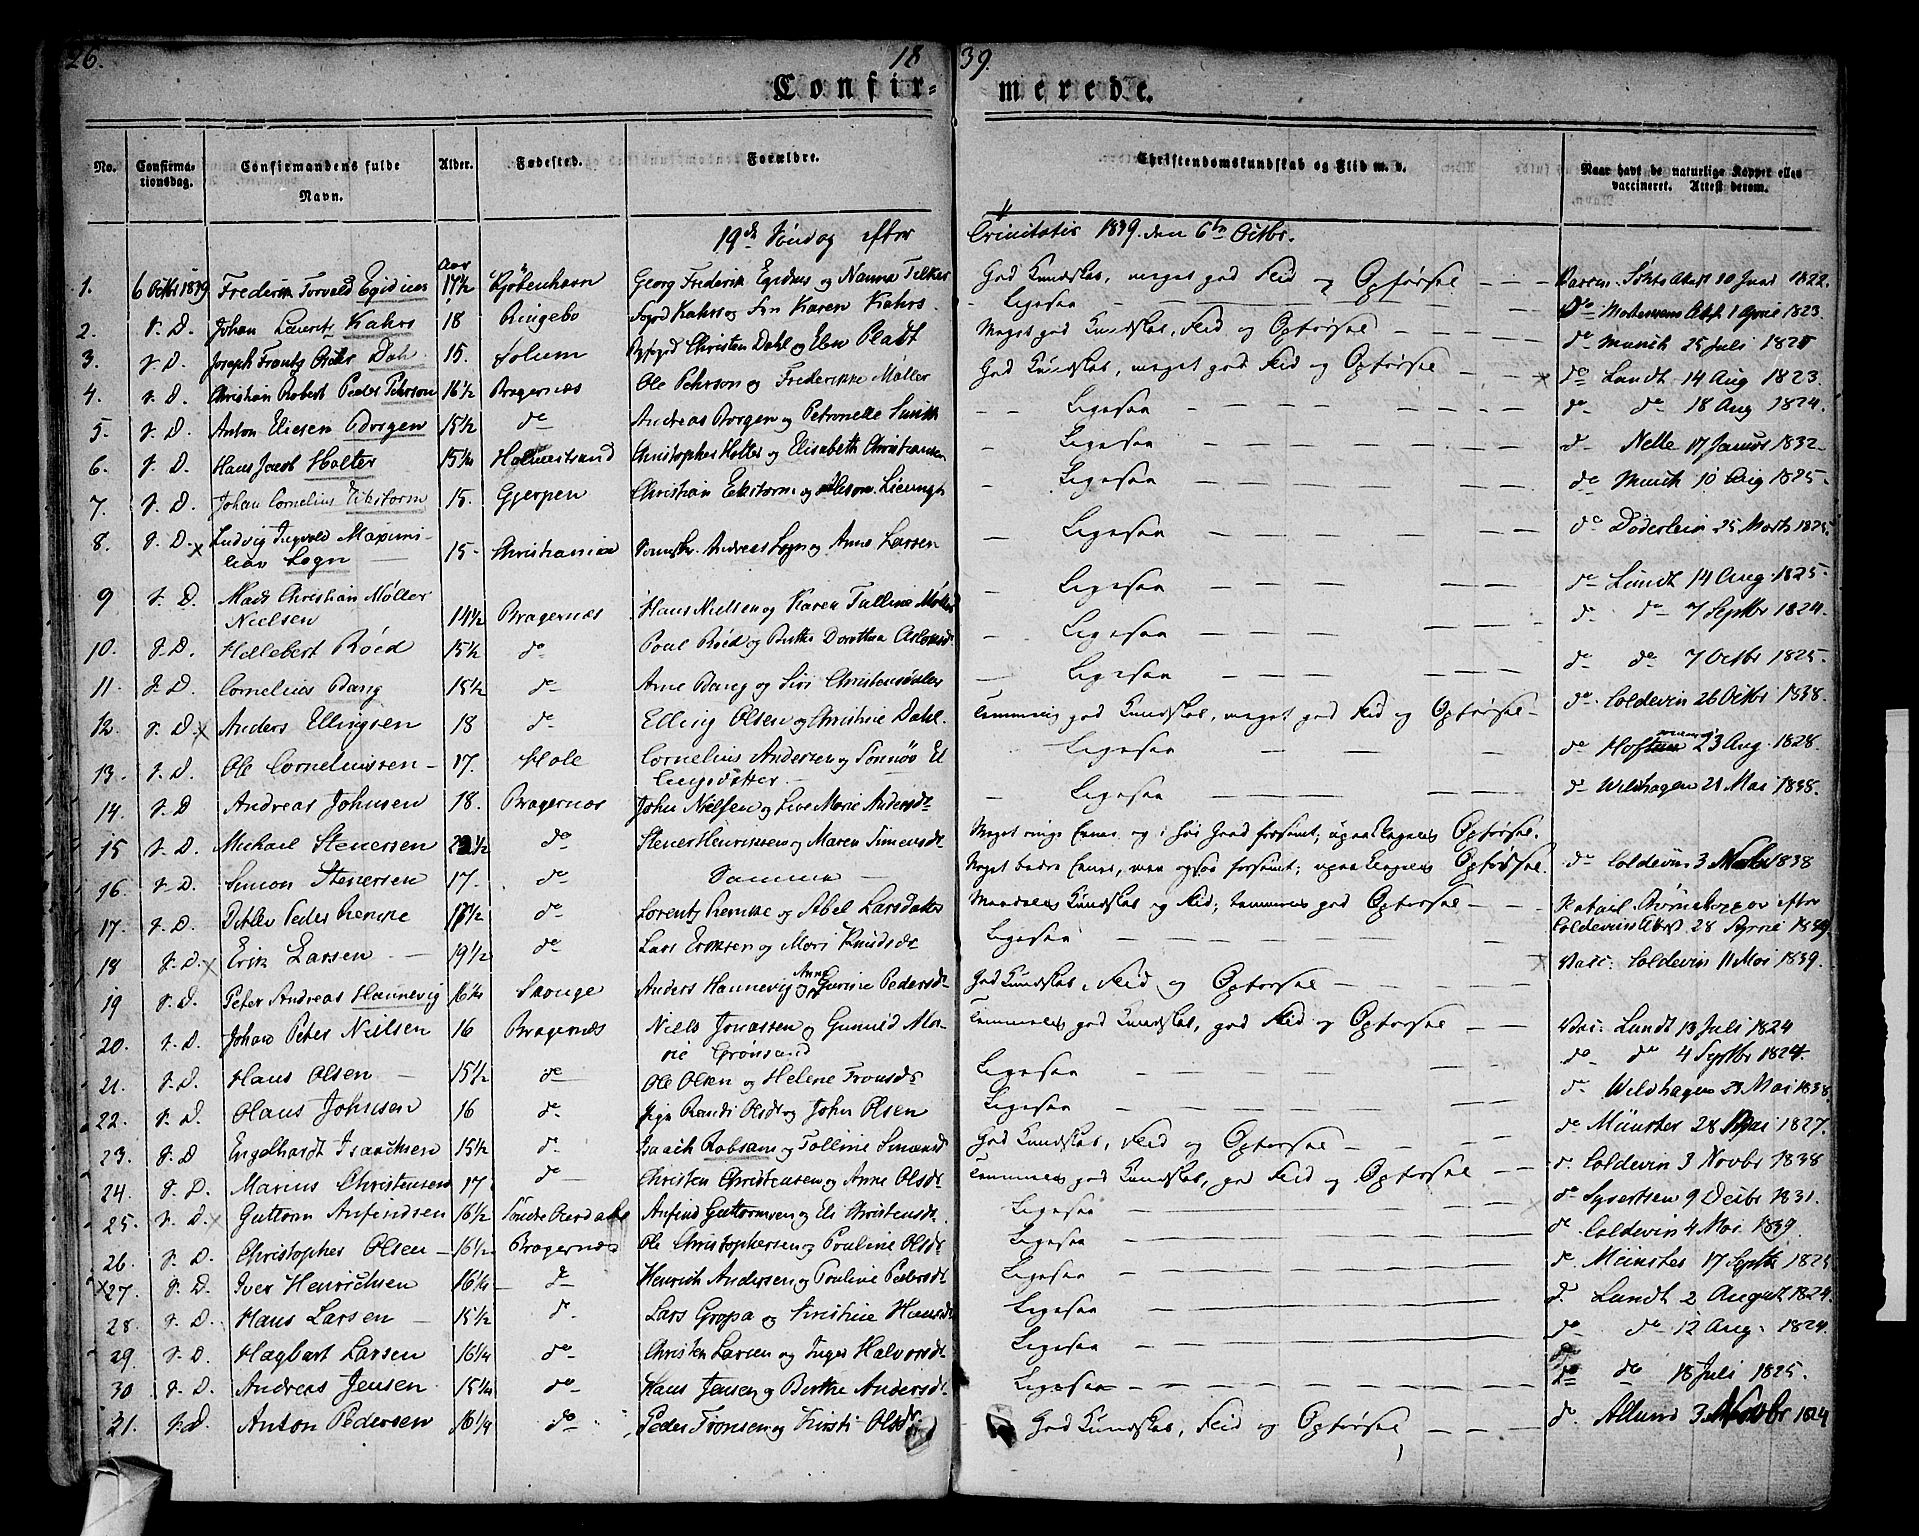 26.
18
39.
Confir-
merede.
No.
Confirma-
tionsdag.
Confirmandens fulde
Navn.
Alder.
Fødested.
Forældre.
Christendomskundskab og Flid m. v.
Naar havt de naturlige Kopper eller
vaccineret. Attest derom.
19de Søndag efter Trinitatis 1839. den 6te Octbr.
Aar
1. 6 Octbr 1839 Frederik Torvald Egidius 17½ Kjøbenhavn Georg Frederik Egidius og Nanna God Kundskab, meget god Flid og Opførsel — — Vaccin. Attest 10 Juni 1822.
2. s. D. Johan Lauritz Kahrs 18 Ringebo Foged Kahrs og Karen Kahrs - Ligesaa — Do Mortensens Attst 1 April 1823.
3. s. D. Joseph Frantz Dahl 15. Solum Christen Dahl og Elen Meget god Kundskab, Flid og Opførsel — — do Munch 25 Juli
4. s. D. Christian Robert Peder Pehrson 16½ Bragernæs Ole Pehrson og Frederikke Møller God Kundskab, meget god Flid og Opførsel — do Lundt 14 Aug 1823.
5. s. D. Anton Eliesen Borgen 15½ do Andreas Borgen og Petronelle — — Ligesaa — do do 18 Aug 1824.
6. s. D. Hans Jacob Holter 15¼ Holmestrand Christopher Holter og Elisabeth Christiansen — Ligesaa — d Nelle 17 1832
7. s. D. Johan Cornelius Eckstorm 15. Gjerpen Christian Eckstorm og — Ligesaa — do Munch 10 Aug 1825.
8. s. D. x Ludvig Ingvald Maximi-
lian Sogn — 15 - Christiania Andreas Sogn og Anne Larsen — Ligesaa — do Döderlein 25 Marts 1825.
9 s. D. Mads Christian Møller
Nielsen 14½ Bragernæs Hans Nielsen og Karen Talline Møller — Ligesaa — do Lundt 14 Aug. 1825.
10. s. D. Hellebert Röed 15½ do Poul Röed og Dorothea — Ligesaa — d. do 7 Septbr 1824.
11. s. D. Cornelius Bang 15½ do Arne Bang og Siri — Ligesaa — do do 7 Octbr 1825.
12. s. D. x Anders Ellingsen 18 do Elling Olsen og Christine Dahl. Temmelig god Kundskab, meget god Flid og Opførsel — do Coldevin 26 Octbr 1838.
13. s. D. Ole Corneliussen — 17. Hole Cornelius Andersen og El
lingsdatter — Ligesaa — do 23 Aug. 1828.
14. s. D Andreas Johnsen 18. Bragernæs John Nielsen og Live Marie Andersdt — Ligesaa — do Wildhagen 21 Mai 1838.
15 s. D. Michael Stenersen do Stener Henriksen og Maren Simensdt Meget ringe Evner, og i høi Grad forsømt; Opførsel.
16. s. D. Simon Stenersen 17. do Samme — Noget bedre Evner, men ogsaa forsømt; Opførsel. do Coldevin 3 Novbr 1838
17. s. D. Detlev Peder Remke 17½ do Lorentz Remke og Abel Larsdatter Maadelig Kundskab og Flid; temmelig god Opførsel — — Naturl. Børnekopper efter
Coldevins Attest 28 1839.
18 s. D. x Erik Larsen — 19½ do Lars Eriksen og Mari Knudsdt Ligesaa — Vacc: Coldevin 11 Mai 1839.
19 s. D. Peter Andreas Hannevig 16¼ Saouge Anders Hannevig og Anne Gurine Pedersdt God Kundskab, Flid og Opførsel —
20. s. D. Johan Peter Nielsen 16 Bragernæs Niels Jonassen og Gunnild Ma-
rie Grønsand Temmelig god Kundskab, god Flid og Opførsel — — Vac: Lundt 13 Juli 1824
21. s. D. Hans Olsen — 15½ do Ole Olsen og Helene Ligesaa — do do 4 Septbr 1824.
22. s. D. Olaus Johnsen 16 do Pige Randi Olsdt og John Olsen Ligesaa — do Wildhagen 23 Mai 1838.
23. s. D Engelhardt Isaachsen 15½ d. Isaach Robsam og Talline God Kundskab, Flid og Opførsel — do Münster 28 Mai 1827.
24. s. D. Marius Christensen 17 do — Christen Christensen og Anne Olsdt Temmelig god Kundskab, god Flid og Opførsel — — d. Coldevin 3 Novbr 1838
25. s. D. x Guttorm Anfindsen 16½ Søndre Aurdal Anfind Guttormsen og Eli Christensdt. Ligesaa — do Syvertsen 9 Decbr 1831.
26. s. D. Christopher Olsen — 16½ Bragernæs Ole Christophersen og Pauline Olsdt Ligesaa — do Coldevin 4 Mai 1839.
x 27. s. D. Iver Henrichsen 16¼ do Henrich Andersen og Pauline Pedersdt Ligesaa — do Münster 17 Septbr
28. s. D. Hans Larsen — 15½ d. Lars Gropa og Kirstine Hansdt Ligesaa — d. Lundt 2 August 1824.
29. s. D. Hagbart Larsen 16¼ do Christen Larsen og Inger Halvorsdt Ligesaa — do do 12 Aug. 1824.
30 s. D. Andreas Jensen 15¼ do Hans Jensen og Berthe Andersdt Ligesaa — do do 18 Juli 1825.
31. s. D. Anton Pedersen 16¼ do Peder Tronsen og Kirsti Olsdt. God Kundskab, Flid og Opførsel — — — do. Allund 3 Novbr 1824